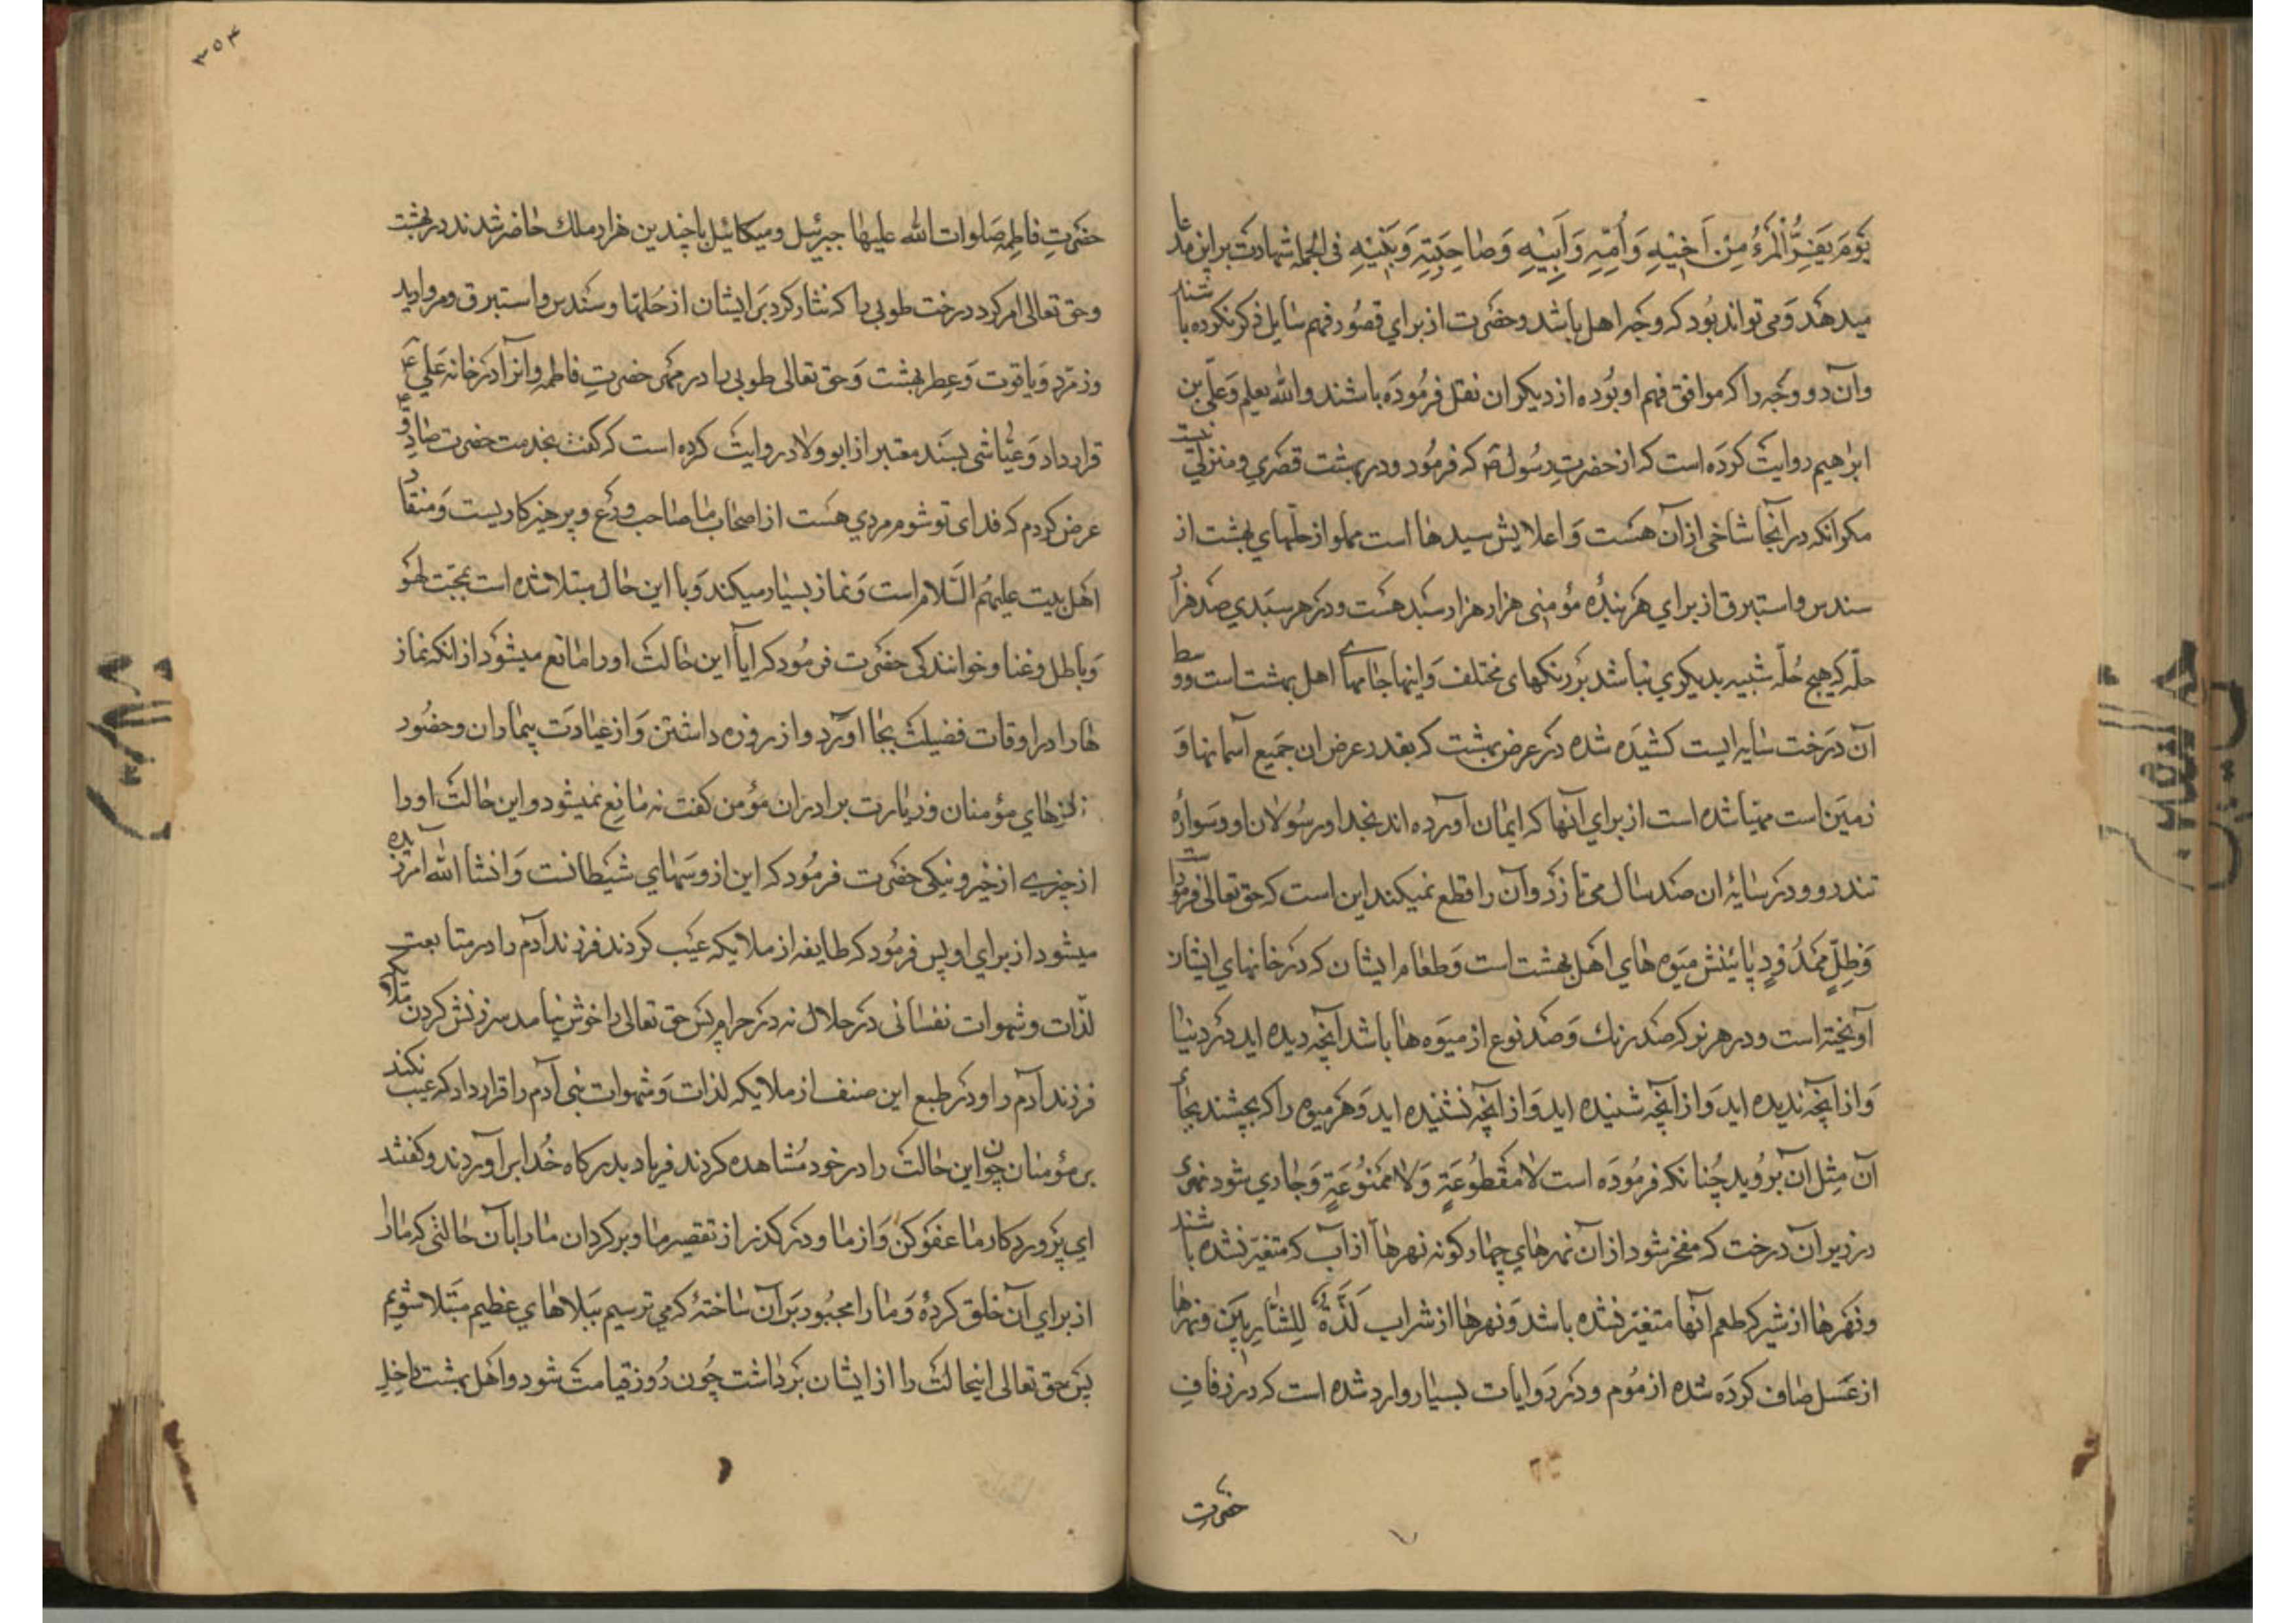 يَوْمَ يَفِرُّ الْمَرْءُ مِنْ اَخيْهِ وَاُمِّهِ وَاَبِيْهِ وَصٰاحِبَتِهِ وَبَنيْهِ فى الجمله شهادت بر اين مدّعا
ميدهد و مى تواند بود كه وجه اهل باشد و حضرت از براي قصور فهم سايل ذكر نكرده باشند
وآن دو وجه را كه موافق فهم او بوده از ديكران نقل فرموده باشند والله يعلم وعلى بن
ابراهيم روايت كرده است كه از حضرت رسول ص كه فرمود و در بهشت قصري و منزلي نيست
مكر انكه در آنجا شاخى از آن هست و اعلايش سبدها است مملو از حلّهاي بهشت از
سندس و استبرق از براي هر بندۀ مؤمنى هزار هزار سبد هست و در هر سبدي صد هزار
حلّه كه هيچ حُلّه شبيه بديكري نباشد بر رنكهاى مختلف و اينها جامهاے اهل بهشت است و وسط
آن درخت سايه ايست كشيده شده در عرض بهشت كه بقدر عرض ان جميع آسمانها و
زمين است مهيا شده است از براي آنها كه ايمان آورده اند بخدا و رسولان او و سوارۀ
تندرو و در سايۀ ان صد سال مى تازد و آن را قطع نميكند اين است كه حق تعالى فرموده است
وَظِلٍّ مَمْدُوْدٍ پائينش ميوه هاي اهل بهشت است و طعام ايشان كه در خانهاي ايشان
آويخته است و در هر نوكر صد رنك و صد نوع از ميوه ها باشد آنچه ديده ايد در دنيا
و از آنچه نديده ايد و از آنچه شنيده ايد و از آنچه نشنيده ايد و هر ميوه را كه بچشند بجاى
آن مثل آن برويد چنانكه فرموده است لا مَقْطُوعَةٍ وَلا مَمْنُوعَةٍ و جاري شود نهرى
در زير آن درخت كه منفجر شود از آن نهرهاي چهار كونه نهرها از آب كه متغيّر نشده باشند
و نهرها از شير كه طعم آنها متغيّر نشده باشد و نهرها از شراب لَذَّةٍ لِلشّارِبينَ و نهرها
از عسل صاف كرده شده از موم و در روايات بسيار وارد شده است كه در زفافِ
حضرت
٣٥٤
حضرتِ فاطِمه صَلوات الله عليها جبرئيل و ميكائيل با چندين هزار ملك حاضر شدند در بهشت
و حق تعالى امر كرد درخت طوبى را كه نثار كرد بر ايشان از حُلّها و سندس و استبرق و مرواريد
و زمرّد و ياقوت و عطر بهشت و حق تعالى طوبى را در مهر حضرتِ فاطمه و انرا در خانۀ علي ع
قرار داد و عيّاشى بسند معتبر از ابو ولاد روايت كرده است كه كفت بخدمت حضرت صادق ع
عرض كردم كه فداى تو شوم مردي هست از اصحاب ما صاحب ورع و پرهيزكاريست و منقاد
اهل بيت عليهم السّلام است و نماز بسيار ميكند و با اين حال مبتلا شده است بمحبّت لهو
و باطل و غنا و خوانندكى حضرت فرمود كه ايا اين حالت او را مانع ميشود از انكه نماز
ها را در اوقات فضيلت بجا آورد و از روزه داشتن و از عيادت بيماران و حضور
جنازهاي مؤمنان و زيارت برادران مؤمن كفت نه مانع نميشود و اين حالت او را
از چيزے از خير و نيكى حضرت فرمود كه اين از وسهاي شيطانست و انشا الله امرزيده
ميشود از براي او پس فرمود كه طايفه از ملايكه عيب كردند فرزند آدم را در متابعت
لذّات و شهوات نفسانى در حلال نه در حرام پس حق تعالى را خوش نيامد سرزنش كردن ملائكه
فرزند آدم را و در طبع اين صنف از ملايكه لذات و شهوات بنى آدم را قرار داد كه عيب نكند
بر مؤمنان چون اين حالت را در خود مُشاهده كردند فرياد بدركاه خُدا برآوردند و كفتند
اي پروردكار ما عفو كن و از ما و در كذر از تقصير ما و بركردان ما را بآن حالتى كه ما را
از براي آن خلق كردۀ و ما را مجبور بر آن ساختۀ كه مي ترسيم ببلاهاي عظيم مبتلا شويم
پس حق تعالى اينحالت را از ايشان برداشت چون روز قيامت شود و اهل بهشت داخلِ